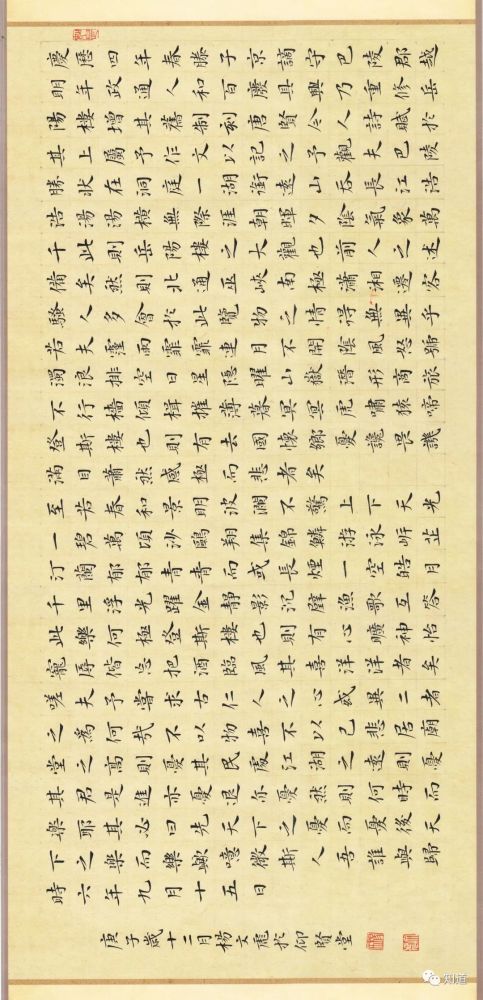 慶曆四年春滕子京謫守巴陵郡越
明年政通人和百廢具興乃重修岳
陽樓增其舊制刻唐賢令人詩賦於
其上屬予作文以記之予觀夫巴陵
勝狀在洞庭一湖銜遠山吞長江浩
浩湯湯橫無際涯朝暉夕陰氣象萬
千此則岳陽樓之大觀也前人之述
備矣然則北通巫峽南極瀟湘遷客
騷人多會於此覽物之情得無異乎
若夫霪雨霏霏連月不開陰風怒號
濁浪排空日星隱曜山嶽潛形商旅
不行檣傾楫摧薄暮冥冥虎嘯猿啼
登斯樓也則有去國懷鄉憂讒畏譏
滿目蕭然感極而悲者矣
至若春和景明波瀾不驚上下天光
一碧萬頃沙鷗翔集錦鱗游泳岸芷
汀蘭郁郁青青而或長煙一空皓月
千里浮光躍金靜影沉璧漁歌互答
此樂何極登斯樓也則有心曠神怡
寵辱偕忘把酒臨風其喜洋洋者矣
嗟夫予嘗求古仁人之心或異二者
之為何哉不以物喜不以己悲居廟
堂之高則憂其民處江湖之遠則憂
其君是進亦憂退亦憂然則何時而
樂耶其必曰先天下之憂而憂後天
下之樂而樂歟噫微斯人吾誰與歸
時六年九月十五日
庚子歲十二月楊文彪於仰賢堂
知道